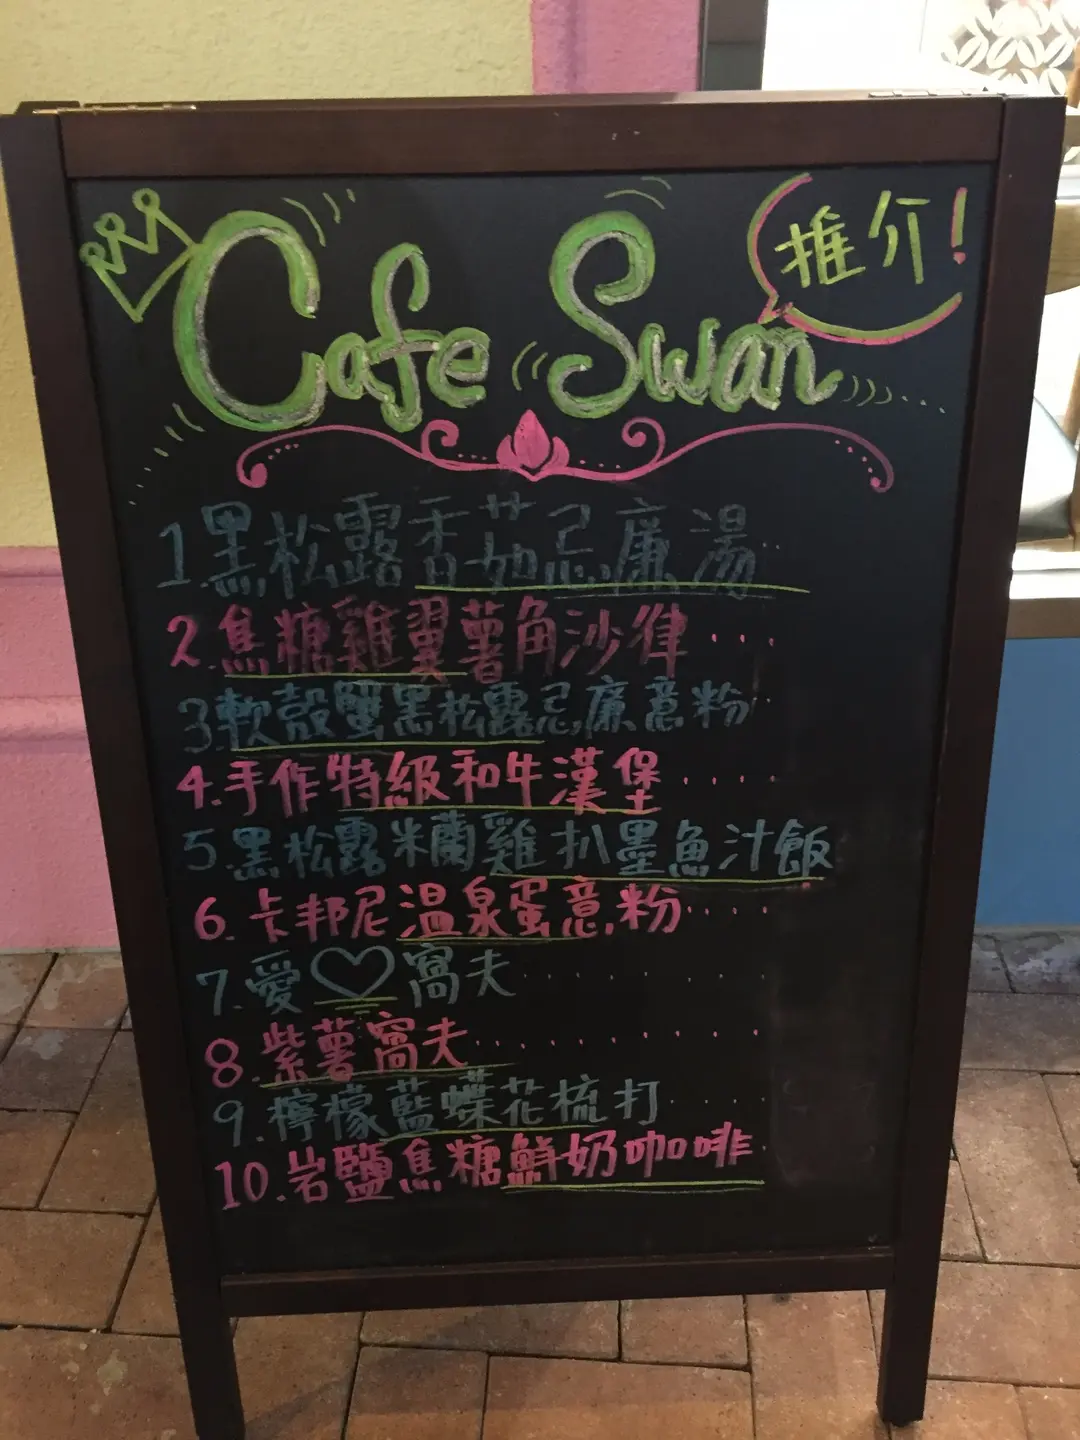 Cafe Swan 推介!
1.黑松露香茹忌廉湯..
2.焦糖雞翼薯角沙律....
3.軟殼蟹黑松露忌廉意粉..
4.手作特級和牛漢堡.....
5.黑松露米蘭雞扒墨魚汁飯
6.卡邦尼溫泉蛋意粉....
7.愛♡窩夫........
8.紫薯窩夫.........
9.檸檬藍蝶花梳打....
10.岩鹽焦糖鮮奶咖啡.